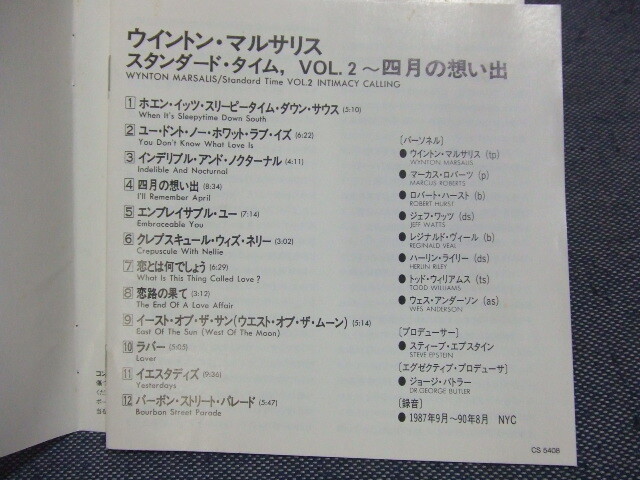 ウイントン・マルサリス
スタンダード・タイム, VOL. 2 〜四月の想い出
WYNTON MARSALIS/Standard Time VOL.2 INTIMACY CALLING
1 ホエン・イッツ・スリーピータイム・ダウン・サウス (5:10)
When It's Sleepytime Down South
2 ユー・ドント・ノー・ホワット・ラブ・イズ (6:22)
You Don't Know What Love Is
3 インデリブル・アンド・ノクターナル (4:11)
Indelible And Nocturnal
4 四月の想い出 (8:34)
I'll Remember April
5 エンブレイサブル・ユー (7:14)
Embraceable You
6 クレプスキュール・ウィズ・ネリー (3:02)
Crepuscule With Nellie
7 恋とは何でしょう (6:29)
What Is This Thing Called Love?
8 恋路の果て (3:12)
The End Of A Love Affair
9 イースト・オブ・ザ・サン(ウエスト・オブ・ザ・ムーン) (5:14)
East Of The Sun (West Of The Moon)
10 ラバー (5:05)
Lover
11 イエスタデイズ (9:36)
Yesterdays
12 バーボン・ストリート・パレード (5:47)
Bourbon Street Parade
〔パーソネル〕
● ウイントン・マルサリス (tp)
WYNTON MARSALIS
● マーカス・ロバーツ (p)
MARCUS ROBERTS
● ロバート・ハースト (b)
ROBERT HURST
● ジェフ・ワッツ (ds)
JEFF WATTS
● レジナルド・ヴィール (b)
REGINALD VEAL
● ハーリン・ライリー (ds)
HERLIN RILEY
● トッド・ウィリアムス (ts)
TODD WILLIAMS
● ウェス・アンダーソン (as)
WES ANDERSON
〔プロデューサー〕
● スティーブ・エプスタイン
STEVE EPSTEIN
〔エグゼクティブ・プロデューサ〕
● ジョージ・バトラー
DR GEORGE BUTLER
〔録音〕
● 1987年9月〜90年8月 NYC
CS 5408